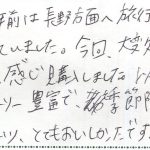 年前は長野方面へ旅行
ていました。今回、大変
感じ購入しました
リー豊富で、季節
ツ、とてもおいしかったです